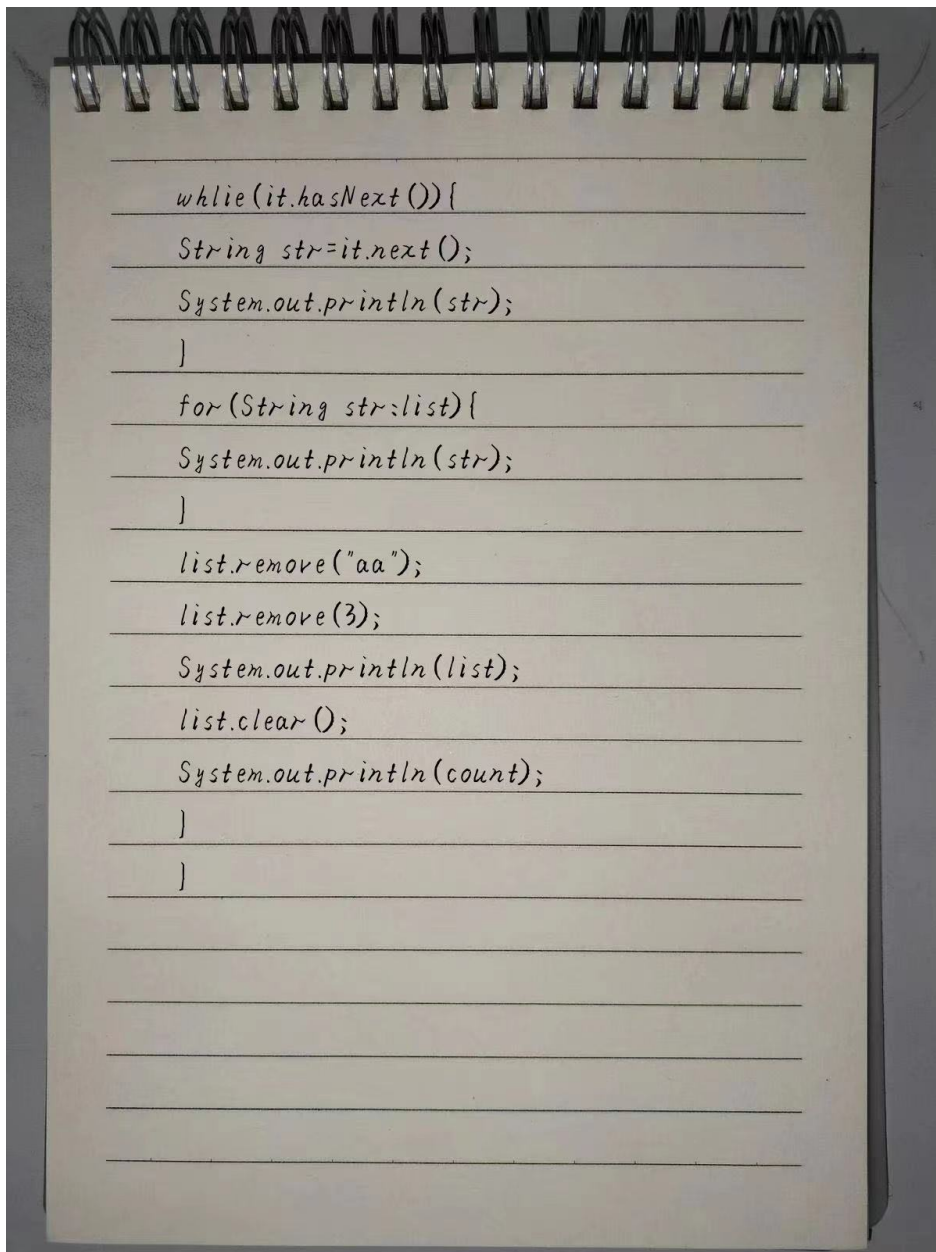 whlie(it.hasNext()){
String str=it.next();
System.out.println(str);
}
for(String str:list){
System.out.println(str);
}
list.remove("aa");
list.remove(3);
System.out.println(list);
list.clear();
System.out.println(count);
}
}